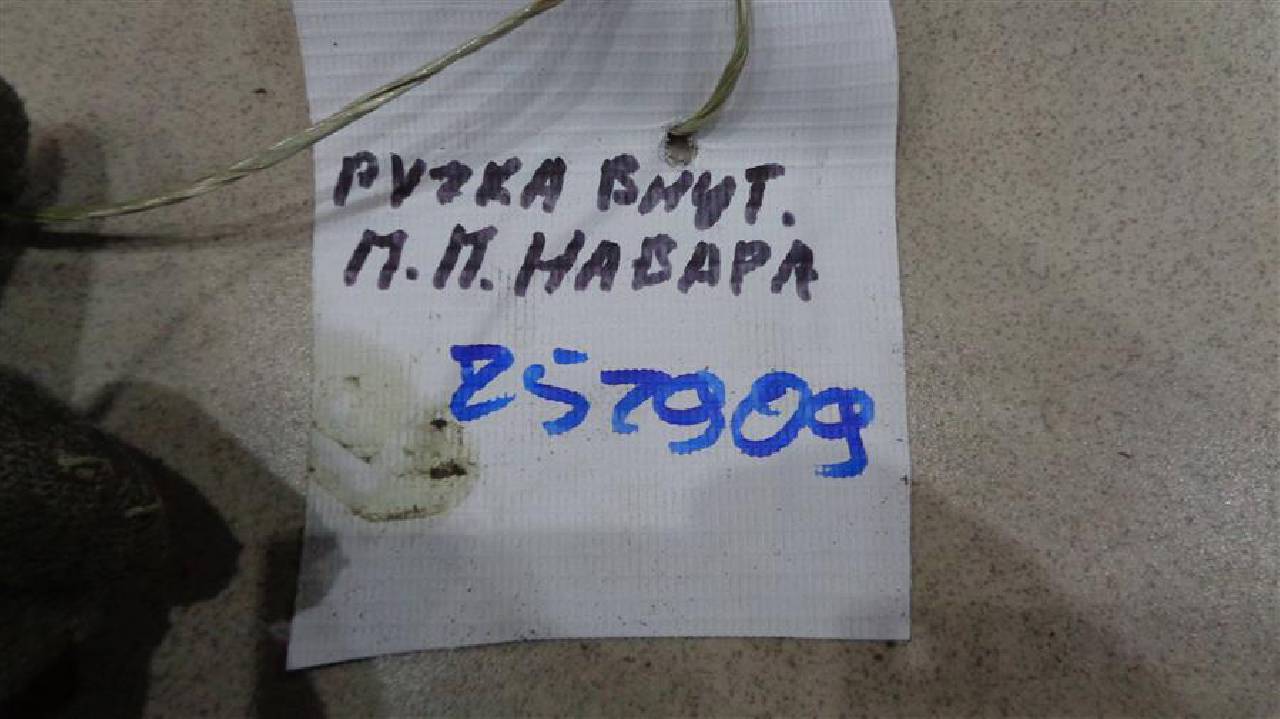 РУЧКА ВНУТ.
П.П. НАВАРА
257909